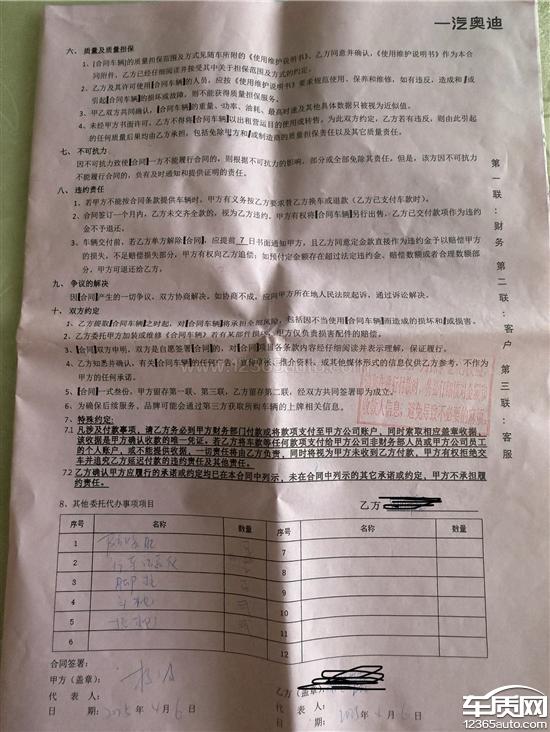 一汽奥迪
六、 质量及质量担保
1、[合同车辆]的质量担保范围及方式见随车所附的《使用维护说明书》，乙方同意并确认，《使用维护说明书》作为本
合同附件，乙方已经仔细阅读并接受其中关于担保范围及方式的约定。
2、乙方及其许可使用[合同车辆]的人员，应按《使用维护说明书》要求规范使用、保养和维修，如有违反，造成和/或
引起[合同车辆]的损坏或故障，则不能获得质量担保服务。
3、甲乙双方共同确认，[合同车辆]的重量、功率、油耗、最高时速及其他具体数据只被视为近似值。
4、未经甲方书面许可，乙方不得将[合同车辆]以出租营运目的使用或转售，为此双方约定，乙方若有违反，则由此引起
的任何质量后果均由乙方承担，包括免除甲方和/或制造商的质量担保责任以及其它质量责任。
七、 不可抗力
因不可抗力致使[合同]一方不能履行合同的，则根据不可抗力的影响，部分或全部免除其责任，但是，该方因不可抗力
不能履行合同的，负有及时通知和提供证明的责任。
八、 违约责任
1、若甲方不能按合同条款提供车辆时，甲方有义务按乙方要求替乙方换车或退款（乙方已支付车款时）。
2、合同签订一个月内，乙方未交齐全款的，视为乙方违约，甲方有权将[合同车辆]另行出售，乙方已交付款项作为违约
金不予退还。
3、车辆交付前，若乙方单方解除[合同]，应提前 7 日书面通知甲方，且乙方同意定金款直接作为违约金予以赔偿甲方
的损失，不足赔偿损失部分，甲方有权向乙方追偿；如预付定金额存在超过法定违约金、赔偿数额或者合理数额部
分，甲方可退还给乙方。
九、争议的解决
因[合同]产生的一切争议，双方协商解决，如协商不成，应向甲方所在地人民法院起诉，通过诉讼解决。
十、双方约定
1、乙方提取[合同车辆]之时起，对[合同车辆]将承担全部风险，包括因不当使用[合同车辆]而造成的损坏和/或损害。
2、乙方委托甲方加装或维修[合同车辆]若有某部件损坏，甲方仅负责损害配件的赔偿。
3、[合同]双方申明，双方是自愿签署[合同]的，对[合同]项目各条款内容经仔细阅读并表示理解，保证履行。
4、乙方知悉并确认，有关[合同车辆]的任何广告、宣传单张、推介资料，或其他媒体形式的信息仅供乙方参考，不作为
甲方的任何承诺。
5、[合同]一式叁份，甲方留存第一联、第三联，乙方留存第二联，经双方共同签署即为成立。
6、为确保后续服务，品牌可能会通过第三方获取所购车辆的上牌相关信息。
7、特殊约定：
7.1 凡涉及付款事项，请乙方务必到甲方财务部门付款或将款项支付至甲方公司账户，同时索取相应盖章收据，
该收据是甲方确认收款的唯一凭证。若乙方将车款等任何款项支付给甲方公司非财务部人员或甲方公司员工
的个人账户，或不能提供收据，一切责任将由乙方负责，同时将视为甲方未收到乙方付款，甲方有权拒绝交
车并追究乙方延迟付款的违约责任及其他责任。
7.2 乙方确认甲方应履行的承诺或约定均已在本合同中列示，未在合同中列示的其它承诺或约定，甲方不承担履
约责任。
乙方
8、其他委托代办事项项目
序号 名称 数量 序号 名称 数量
1 7
2 8
3 脚垫 9
4 10
5 11
6 12
合同签署：
甲方（盖章）： 乙方（盖章）：
代 表 人： 代 表 人：
日 期： 2025 年 4 月 6 日 日 期： 2025 年 4 月 6 日
第一联：财务 第二联：客户 第三联：客服
车质网
12365auto.com